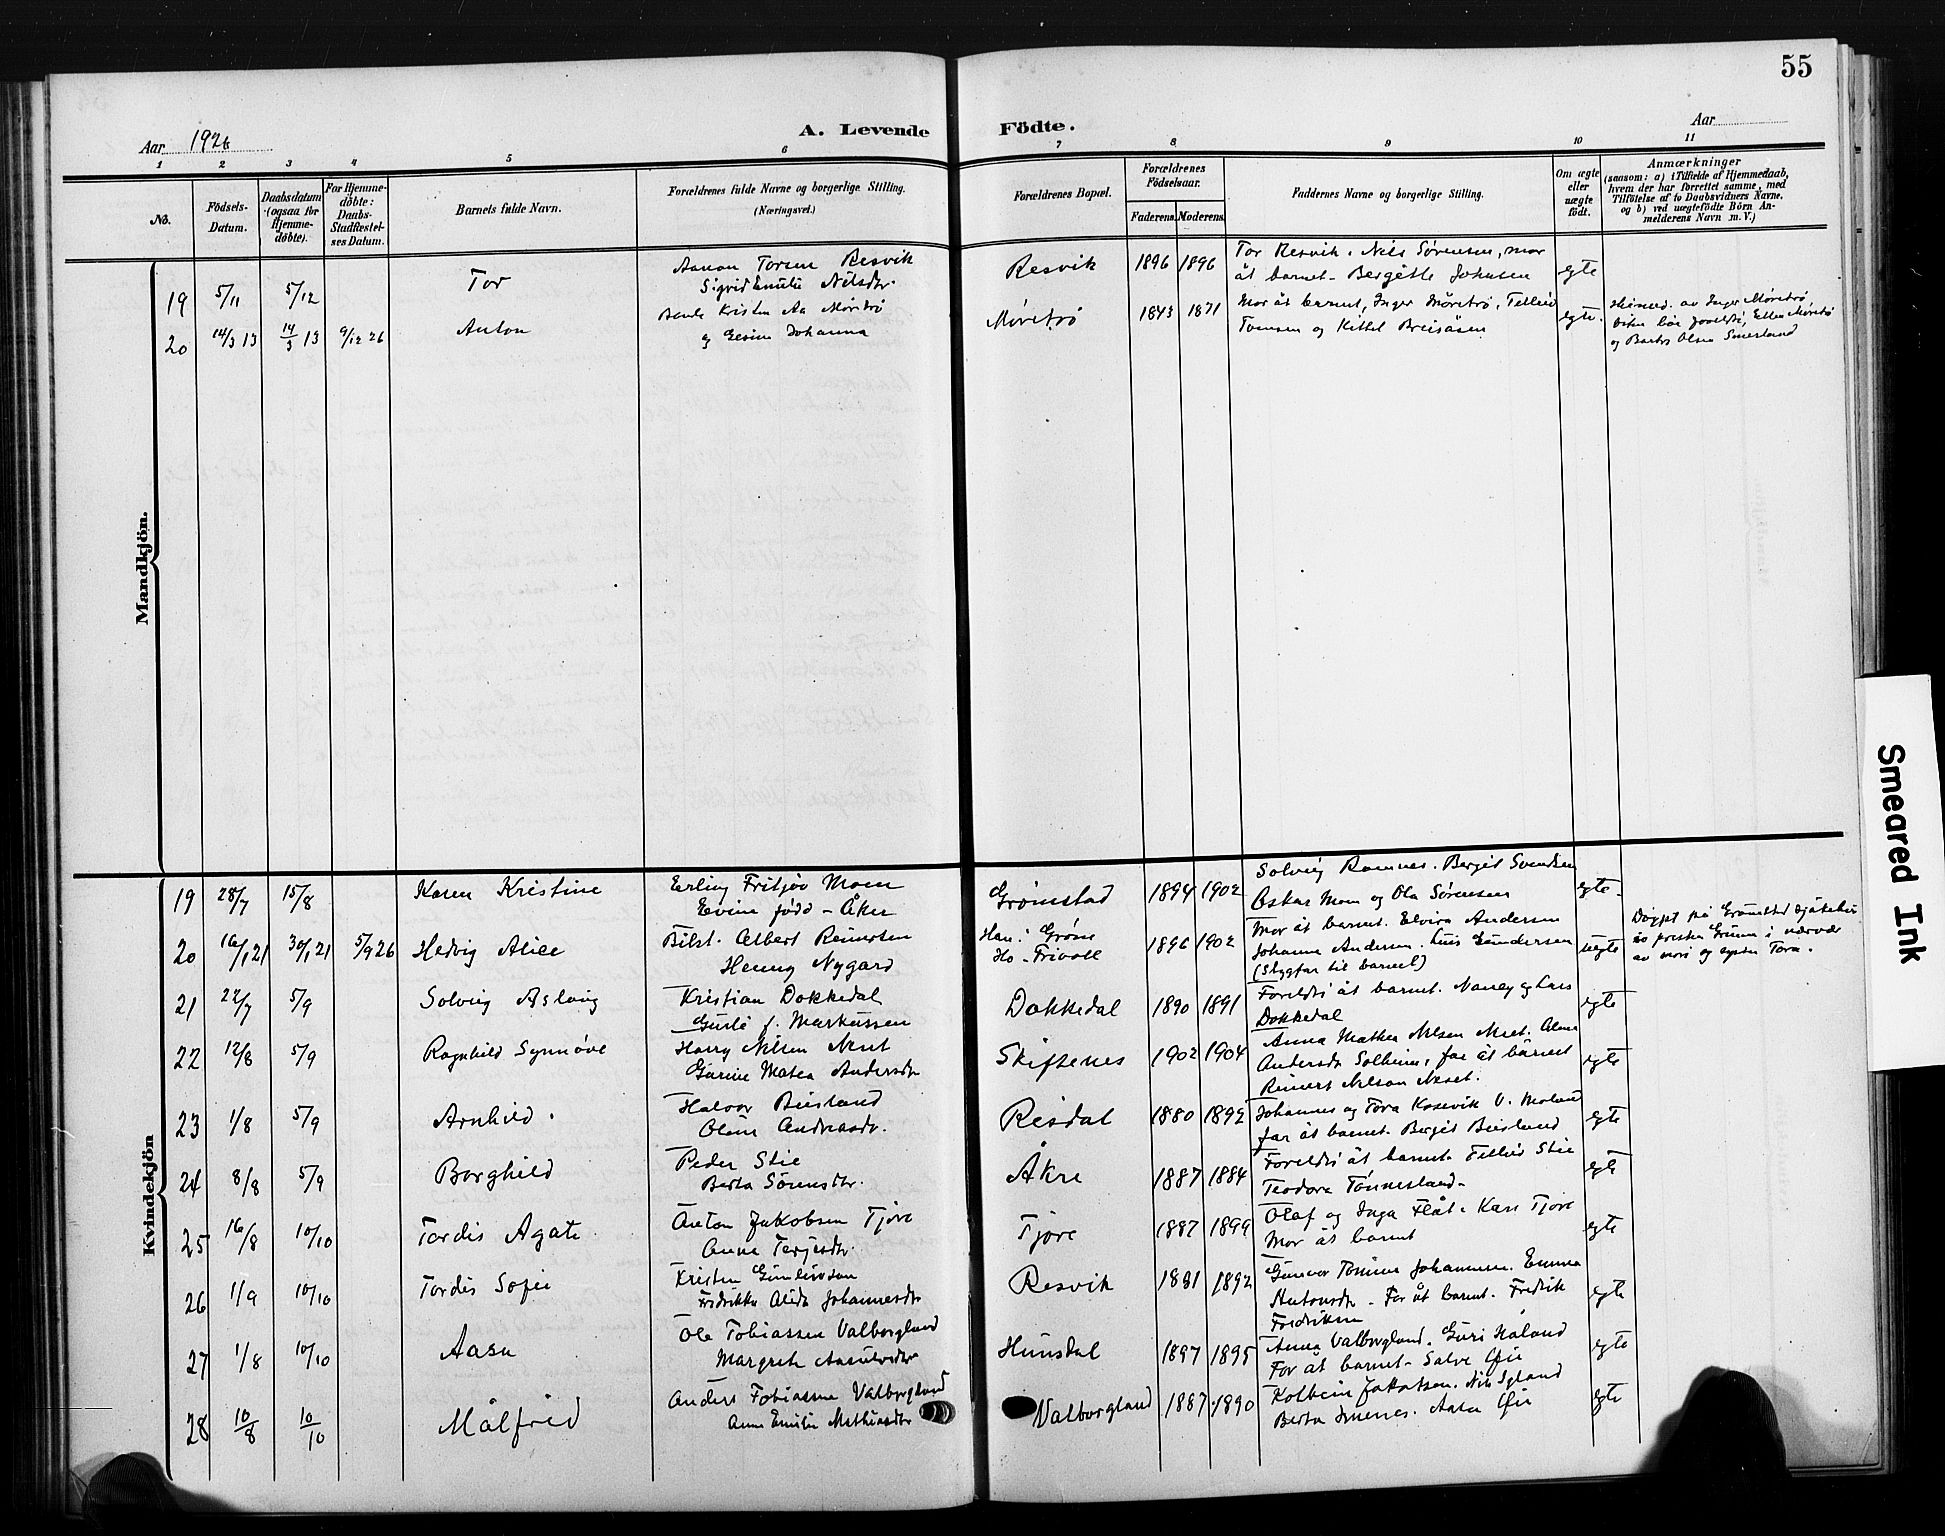 55
Aar 1926
A. Levende Födte.
Aar
1 2 3 4 5 6 7 8 9 10 11
No.
Födsels-Datum.
Daabsdatum (ogsaa for Hjemme-döbte).
For Hjemme-döbte: Daabs-Stadfæstel-ses Datum.
Barnets fulde Navn.
Forældrenes fulde Navne og borgerlige Stilling.
(Næringsvei.)
Forældrenes Bopæl.
Forældrenes Födselsaar.
Faderens. Moderens.
Faddernes Navne og borgerlige Stilling.
Om ægte eller uægte födt.
Anmærkninger
(saasom: a) i Tilfælde af Hjemmedaab,
hvem der har forrettet samme, med
Tilföielse af to Daabsvidners Navne,
og b) ved uægtefödte Börn An-
melderens Navn m. V.)
Mandkjön.
19 5/11 5/12 Tor
Torsen Resvik
Sigrid Emilie Nilsdtr.
Resvik 1896 1896
Tor Resvik. Nils Sørensen, mor
åt barnet. Bergitte Johnsen
egte
20 14/3 13 14/3 13 9/12 26 Anton
Kristen Aa Møretrø
og Johanna
Møretrø 1843 1871
Mor åt barnet, Inger Møretrø. Tellev
Tomsen og Kittel Breisåsen
egte.
av Inger Møretrø,
Ellen Møretrø
og Olsen Smeland
Kvindekjön
19 28/7 15/8 Karen Kristine
Erling Fritjov Mom
Evine fødd - Åker
Grømstad 1894 1902
Solveig Ramnes. Bergit Svendsen
Oskar Mom og Ola Sørensen
egte.
20 16/1 21 30/1 21 5/9 26 Hedvig Alice
Bilst. Albert Reinertsen
Henny Nygård
Han: Grøm
Ho - Frivoll
1896 1902
Mor åt barnet. Elvira Andersen
Johanne Andersen. Gundersen
(Stygfar til barnet)
uegte
Døypt på Grømstad sjukehus
av mori og Tora.
21 22/7 5/9 Solveig Aslaug
Kristian Dokkedal
f. Markussen
Dokkedal 1890 1891
Foreldri åt barnet. Nancy og Lars
Dokkedal
egte
22 12/8 5/9 Ragnhild Synnøve
Harry Nilsen Neset
Gurine Matea Andersdtr
Skiftenes 1902 1904
Anna Mathea Nilsen Neset.
Andersdtr Solheim, far åt barnet
Reinert Nilsen Neset.
egte
23 1/8 5/9 Arnhild.
Halvor Beisland
Olene Andreasdtr.
Risdal 1880 1892
Johannes og Tora Kasevik V. Moland
far åt barnet. Bergit Beisland
egte
24 8/8 5/9 Borghild
Peder Stie
Berta Sørensdtr.
Åkre 1887 1884
Foreldri åt barnet. Tellev Stie
Teodora Tønnesland.
egte
25 16/8 10/10 Tordis Agate
Anton Jakobsen Tjore
Anna Terjesdtr.
Tjore 1887 1899
Olaf og Inga Flåt. Kari Tjore
Mor åt barnet
egte
26 1/9 10/10 Tordis Sofie
Kristen Gunleivson
Fredrikke Alida Johannesdtr
Resvik 1881 1892
Gunvor Tomine Johannesen. Emma
Antonsdtr. Far åt barnet. Fredrik
Fredriksen
egte
27 1/8 10/10 Aasa
Ole Tobiassen Valborgland
Margrete Aasulvsdtr
Hunsdal 1897 1895
Anna Valborgland. Guri Håland
Far åt barnet. Salve
egte
28 10/8 10/10 Målfrid
Anders Tobiassen Valborgland
Anne Emilie Mathiasdtr
Valborgland 1887. 1890
Kolbein Jakobsen. Nils Igland
Berta. Aasa
egte
Smeared Ink